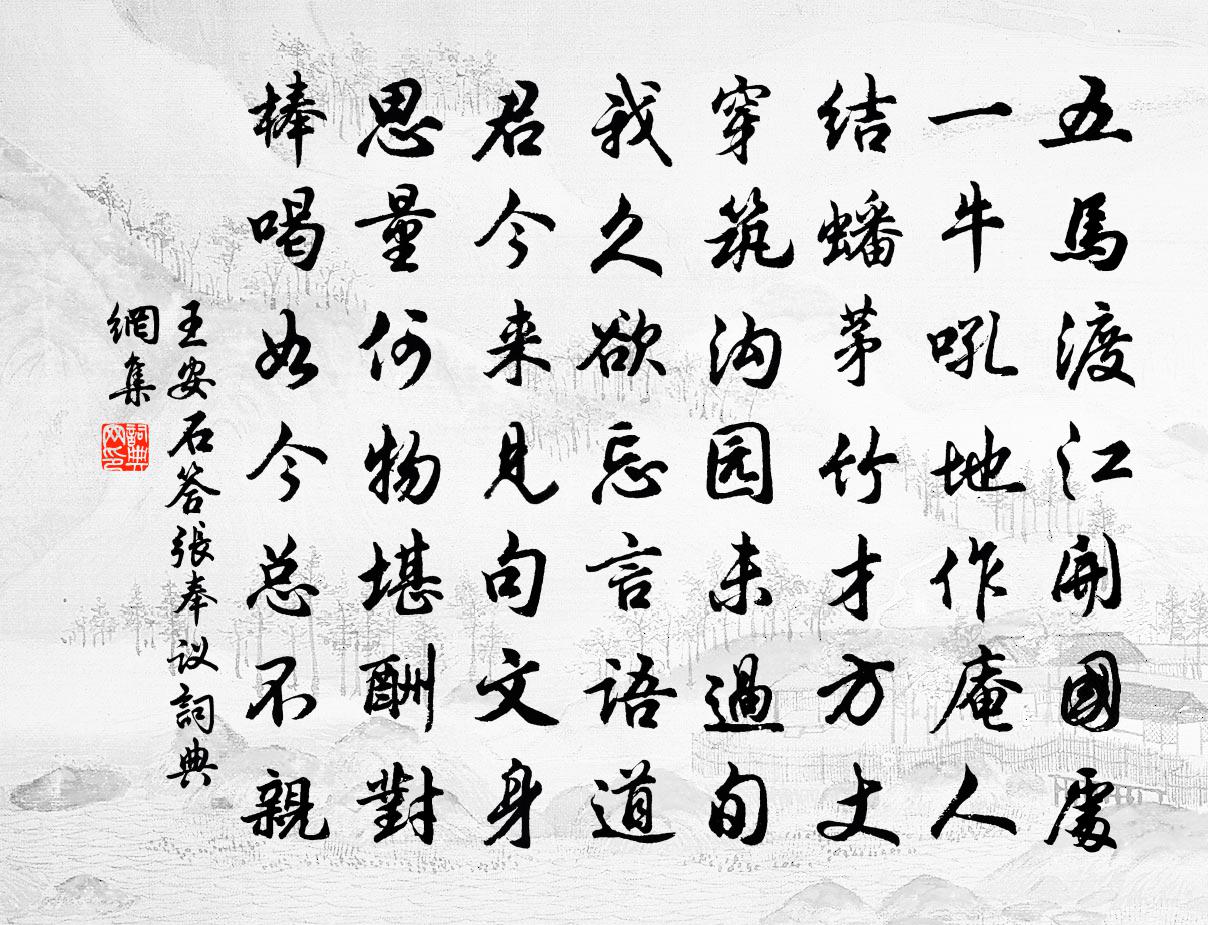 五馬渡江開國處
一牛吼地作庵人
结蟠茅竹才方丈
穿筑沟园未過旬
我久欲忘言语道
君今来見句文身
思量何物堪酬對
棒喝如今总不親
王安石答張奉议詞典
網集
詞典
网印